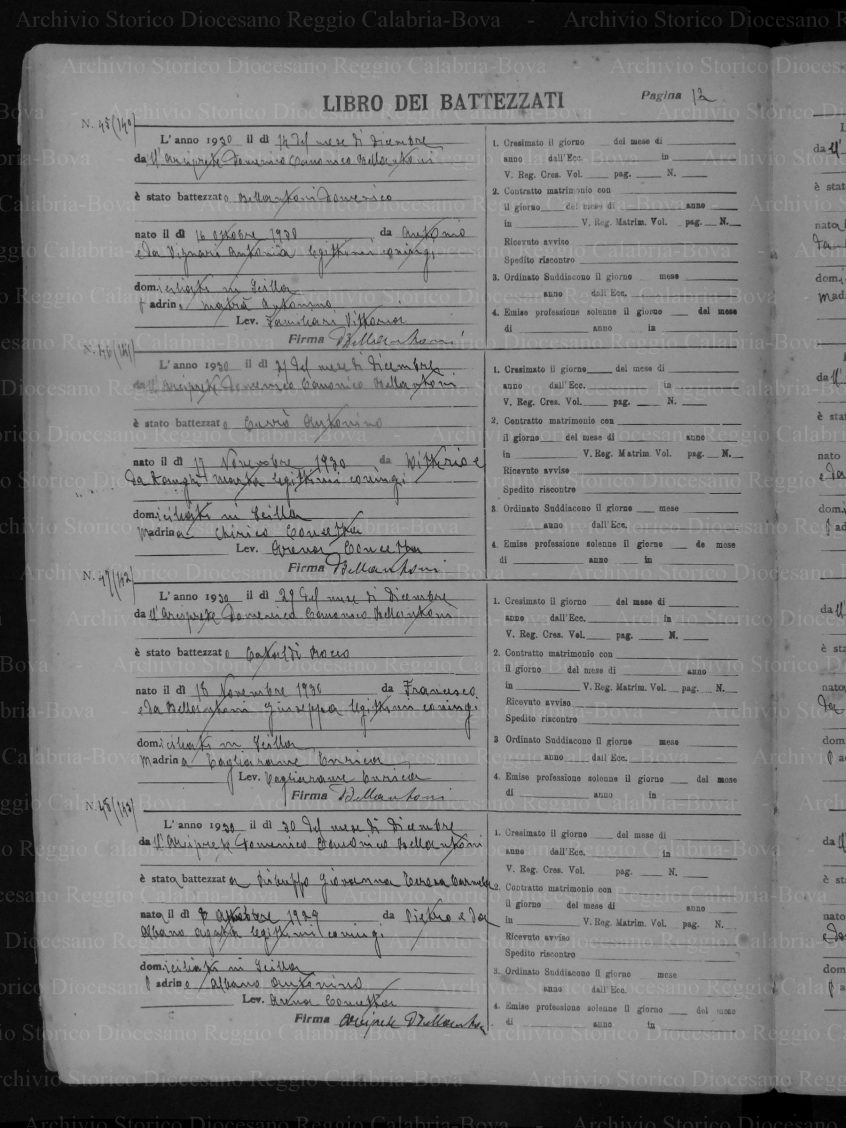 LIBRO DEI BATTEZZATI
Pagina 12
N. 45 (140)
L' anno 1930 il dì 14 del mese di Dicembre
da ll'Arciprete Domenico Canonico Bellantoni
è stato battezzato Bellantoni Domenico
nato il dì 16 ottobre 1930 da Antonio
e da Antonia legittimi coniugi
domiciliati in Scilla
Padrino Antonino
Lev. Familiari Vittoria
Firma Bellantoni
1. Cresimato il giorno del mese di
anno dall'Ecc. in
V. Reg. Cres. Vol. pag. N.
2. Contratto matrimonio con
il giorno del mese di anno
in V. Reg. Matrim. Vol. pag. N.
Ricevuto avviso
Spedito riscontro
3. Ordinato Suddiacono il giorno mese
anno dall'Ecc.
4. Emise professione solenne il giorno del mese
di anno in
N. 46 (141)
L' anno 1930 il dì 27 del mese di Dicembre
da ll'Arciprete Domenico Canonico Bellantoni
è stato battezzato Antonino
nato il dì 17 Novembre 1930 da Vittorio e
da legittimi coniugi
domiciliati in Scilla
Madrina Chirico Concetta
Lev. Arena Concetta
Firma Bellantoni
1. Cresimato il giorno del mese di
anno dall'Ecc. in
V. Reg. Cres. Vol. pag. N.
2. Contratto matrimonio con
il giorno del mese di anno
in V. Reg. Matrim. Vol. pag. N.
Ricevuto avviso
Spedito riscontro
3. Ordinato Suddiacono il giorno mese
anno dall'Ecc.
4. Emise professione solenne il giorno de mese
di anno in
N. 47 (142)
L' anno 1930 il dì 29 del mese di Dicembre
da ll'Arciprete Domenico Canonico Bellantoni
è stato battezzato Cataldi Rocco
nato il dì 18 Novembre 1930 da Francesco
e da Bellantoni Giuseppa legittimi coniugi
domiciliati in Scilla
Madrina Enrica
Lev. Enrica
Firma Bellantoni
1. Cresimato il giorno del mese di
anno dall'Ecc. in
V. Reg. Cres. Vol. pag. N.
2. Contratto matrimonio con
il giorno del mese di anno
in V. Reg. Matrim. Vol. pag. N.
Ricevuto avviso
Spedito riscontro
3 Ordinato Suddiacono il giorno mese
anno dall'Ecc.
4. Emise professione solenne il giorno del mese
di anno in
N. 48 (143)
L' anno 1930 il dì 30 del mese di Dicembre
da ll'Arciprete Domenico Canonico Bellantoni
è stata battezzata Giovanna Teresa Carmela
nata il dì 8 ottobre 1929 da Pietro e da
Albano Agata legittimi coniugi
domiciliati in Scilla
Padrino Albano Antonino
Lev. Arena Concetta
Firma Arciprete Bellantoni
1. Cresimato il giorno del mese di
anno dall'Ecc. in
V. Reg. Cres. Vol. pag. N.
2. Contratto matrimonio con
il giorno del mese di anno
in V. Reg. Matrim. Vol. pag. N.
Ricevuto avviso
Spedito riscontro
3. Ordinato Suddiacono il giorno mese
anno dall'Ecc.
4. Emise professione solenne il giorno del mese
di anno in
Archivio Storico Diocesano Reggio Calabria-Bova